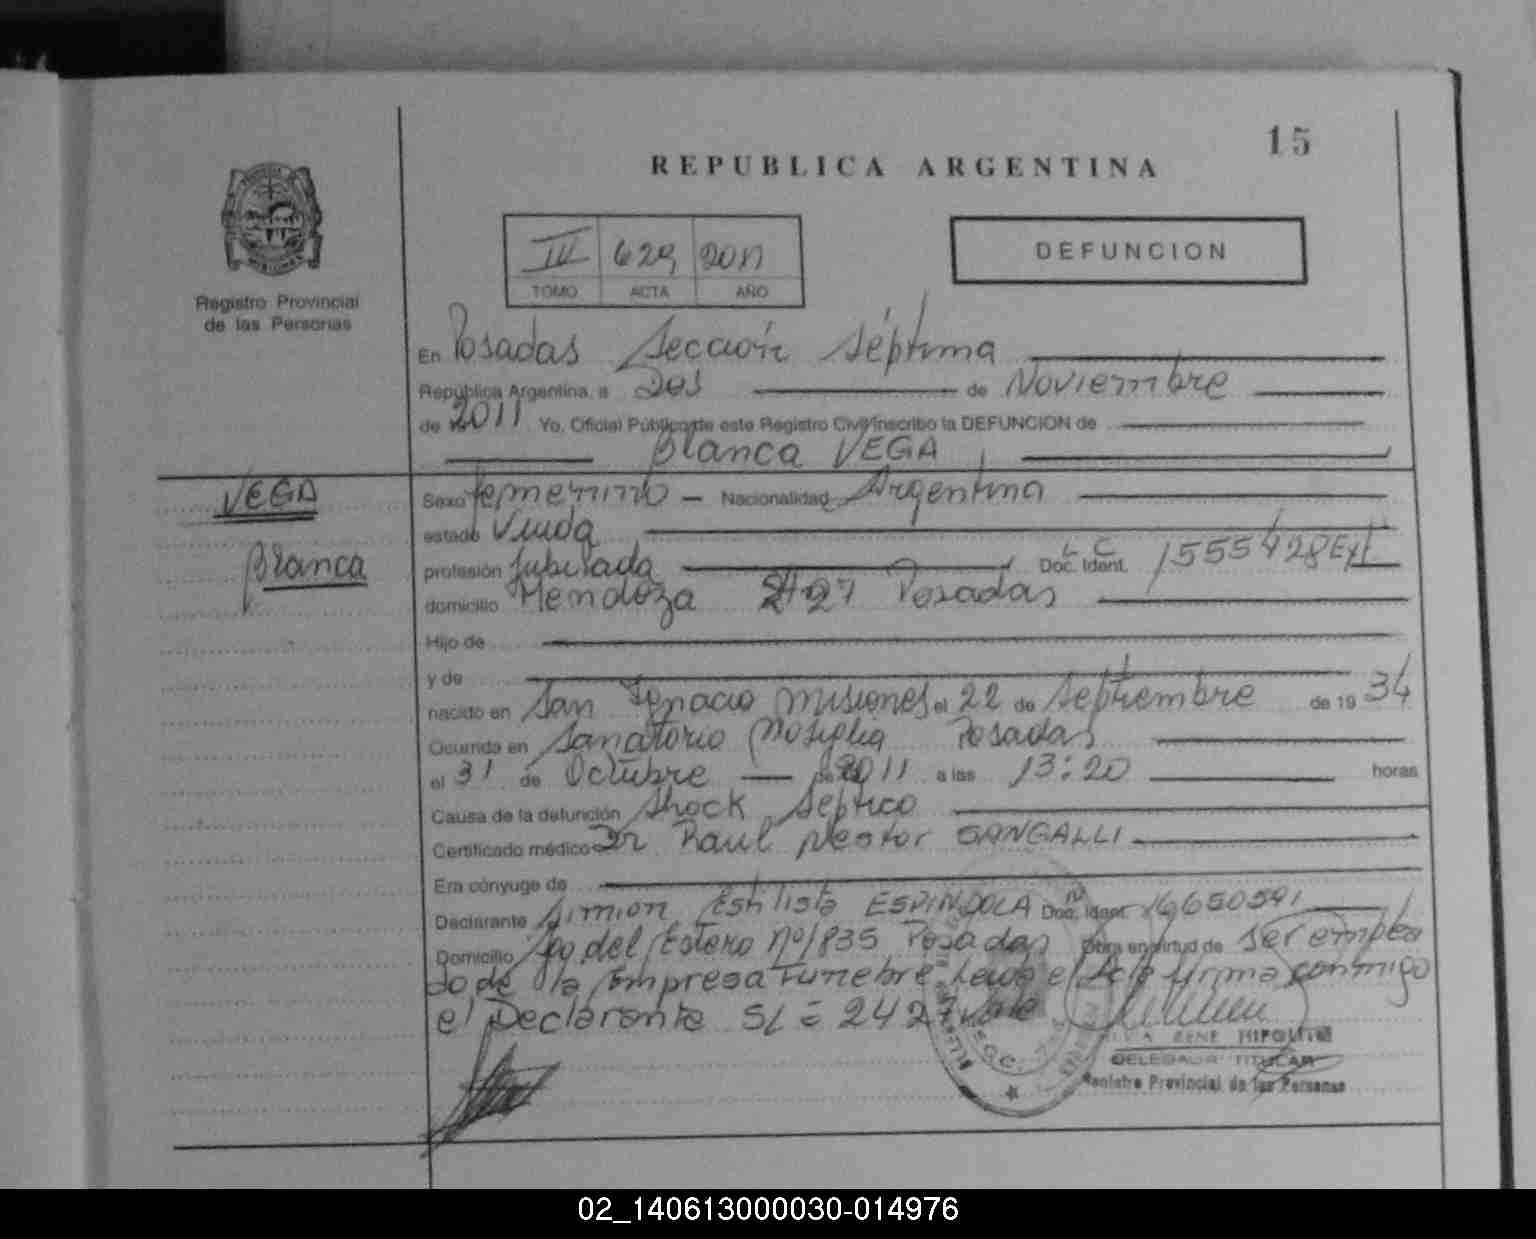 15
REPUBLICA ARGENTINA
III 629 2011
TOMO ACTA AÑO
DEFUNCION
Registro Provincial
de las Personas
En Posadas Sección Séptima
República Argentina, a Dos de Noviembre
de 2011 Yo, Oficial Público de este Registro Civil inscribo la DEFUNCION de
Blanca VEGA
VEGA
Blanca
Sexo femenino - Nacionalidad Argentina
estado Viuda
profesión Jubilada Doc. Ident. L C 1555428 Ext
domicilio Mendoza 2427 Posadas
Hijo de
y de
nacido en San Ignacio Misiones el 22 de Septiembre de 19 34
Ocurrida en Sanatorio Posadas
el 31 de Octubre de 2011 a las 13:20 horas
Causa de la defunción Shock Séptico
Certificado médico Dr Raul Nestor SANGALLI
Era cónyuge de
Declarante ESPINDOLA Doc. Ident. 16650591
Domicilio Sgo del Estero Nº 1835 Posadas Obra en virtud de ser emplea
do de la Empresa Funebre Leida el Acta firma conmigo
el Declarante S/ = 2427 vale
RENE HIPOLITO
DELEGADA TITULAR
Registro Provincial de las Personas
02_140613000030-014976